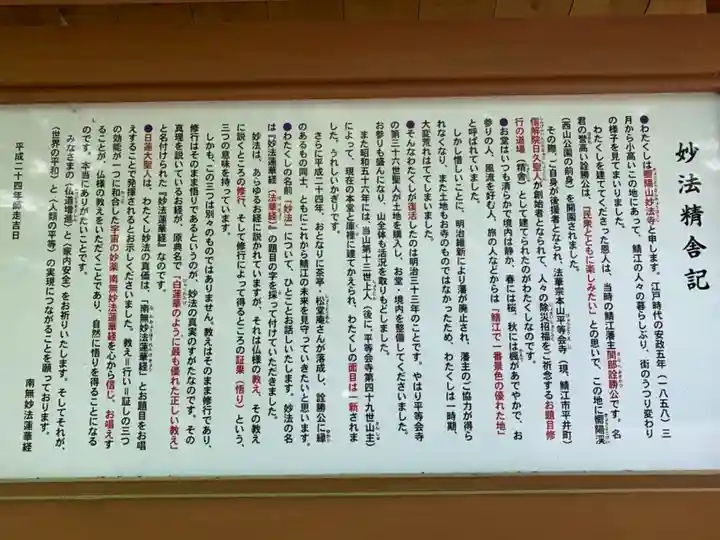 妙法精舎記
●わたくしは嚮陽山妙法寺と申します。江戸時代の安政五年（一八五八）三
月から小高いこの地にあって、鯖江の人々の暮らしぶり、街のうつり変わり
の様子を見てまいりました。
わたくしを建ててくださった恩人は、当時の鯖江藩主間部詮勝公です。名
君の誉高い詮勝公は、「民衆とともに楽しみたい」との思いで、この地に嚮陽溪
（西山公園の前身）を開園されました。
その際、ご自身が後援者となられて、法華宗本山平等会寺（現、鯖江市平井町）
信解院日久聖人が創始者となられ、人々の除災招福をご祈念するお題目修
行の道場（精舎）として建てられたのがわたくしです。
●お堂はいつも清らかで境内は静か、春には桜、秋には楓があでやかで、お
参りの人、風流を好む人、旅の人などからは「鯖江で一番景色の優れた地」
と呼ばれていました。
しかし惜しいことに、明治維新により藩が廃止され、藩主のご協力が得ら
れなくなり、また土地もお寺のものではなかったため、わたくしは一時期、
大変荒れはててしまいました。
●そんなわたくしが復活したのは明治三十三年のことです。やはり平等会寺
の第三十六世聖人が土地を購入し、お堂・境内を整備してくださいました。
お参りも盛んになり、山全体も活況を取りもどしました。
また昭和五十六年には、当山第十三世上人（後に、平等会寺第四十九世山主）
によって、現在の本堂と庫裡に建てかえられ、わたくしの面目は一新されま
した。うれしいかぎりです。
さらに平成二十四年、おとなりに茶亭・松堂庵さんが落成し、詮勝公に縁
のあるもの同士、ともにこれから鯖江の未来を見守っていきたいと思います。
●わたくしの名前「妙法」について、ひとことお話しいたします。妙法の名
は『妙法蓮華経（法華経）』の題目の字を採って付けていただきました。
妙法は、あらゆるお経に説かれていますが、それは仏様の教え、その教え
に説くところの修行、そして修行によって得るところの証果（悟り）という、
三つの意味を持っています。
しかも、この三つは別々のものではありません。教えはそのまま修行であり、
修行はそのまま悟りであるというのが、妙法の真実のすがたなのです。その
真理を説いているお経が、原典名で「白蓮華のように最も優れた正しい教え」
と名付けられた『妙法蓮華経』なのです。
●日蓮大聖人は、わたくし妙法の真価は、「南無妙法蓮華経」とお題目をお唱
えすることで発揮されるとお示しくださいました。教え＝行い＝証しの三つ
の効能が一つに和合した宇宙の妙薬 南無妙法蓮華経を心から信じ、お唱えす
ることが、仏様の教えをいただくことであり、自然に悟りを得ることになる
のです。本当にありがたいことです。
みなさまの〈仏道増進〉と〈家内安全〉をお祈りいたします。そしてそれが、
〈世界の平和〉と〈人類の平等〉の実現につながることを願っております。
平成二十四年師走吉日
南無妙法蓮華経